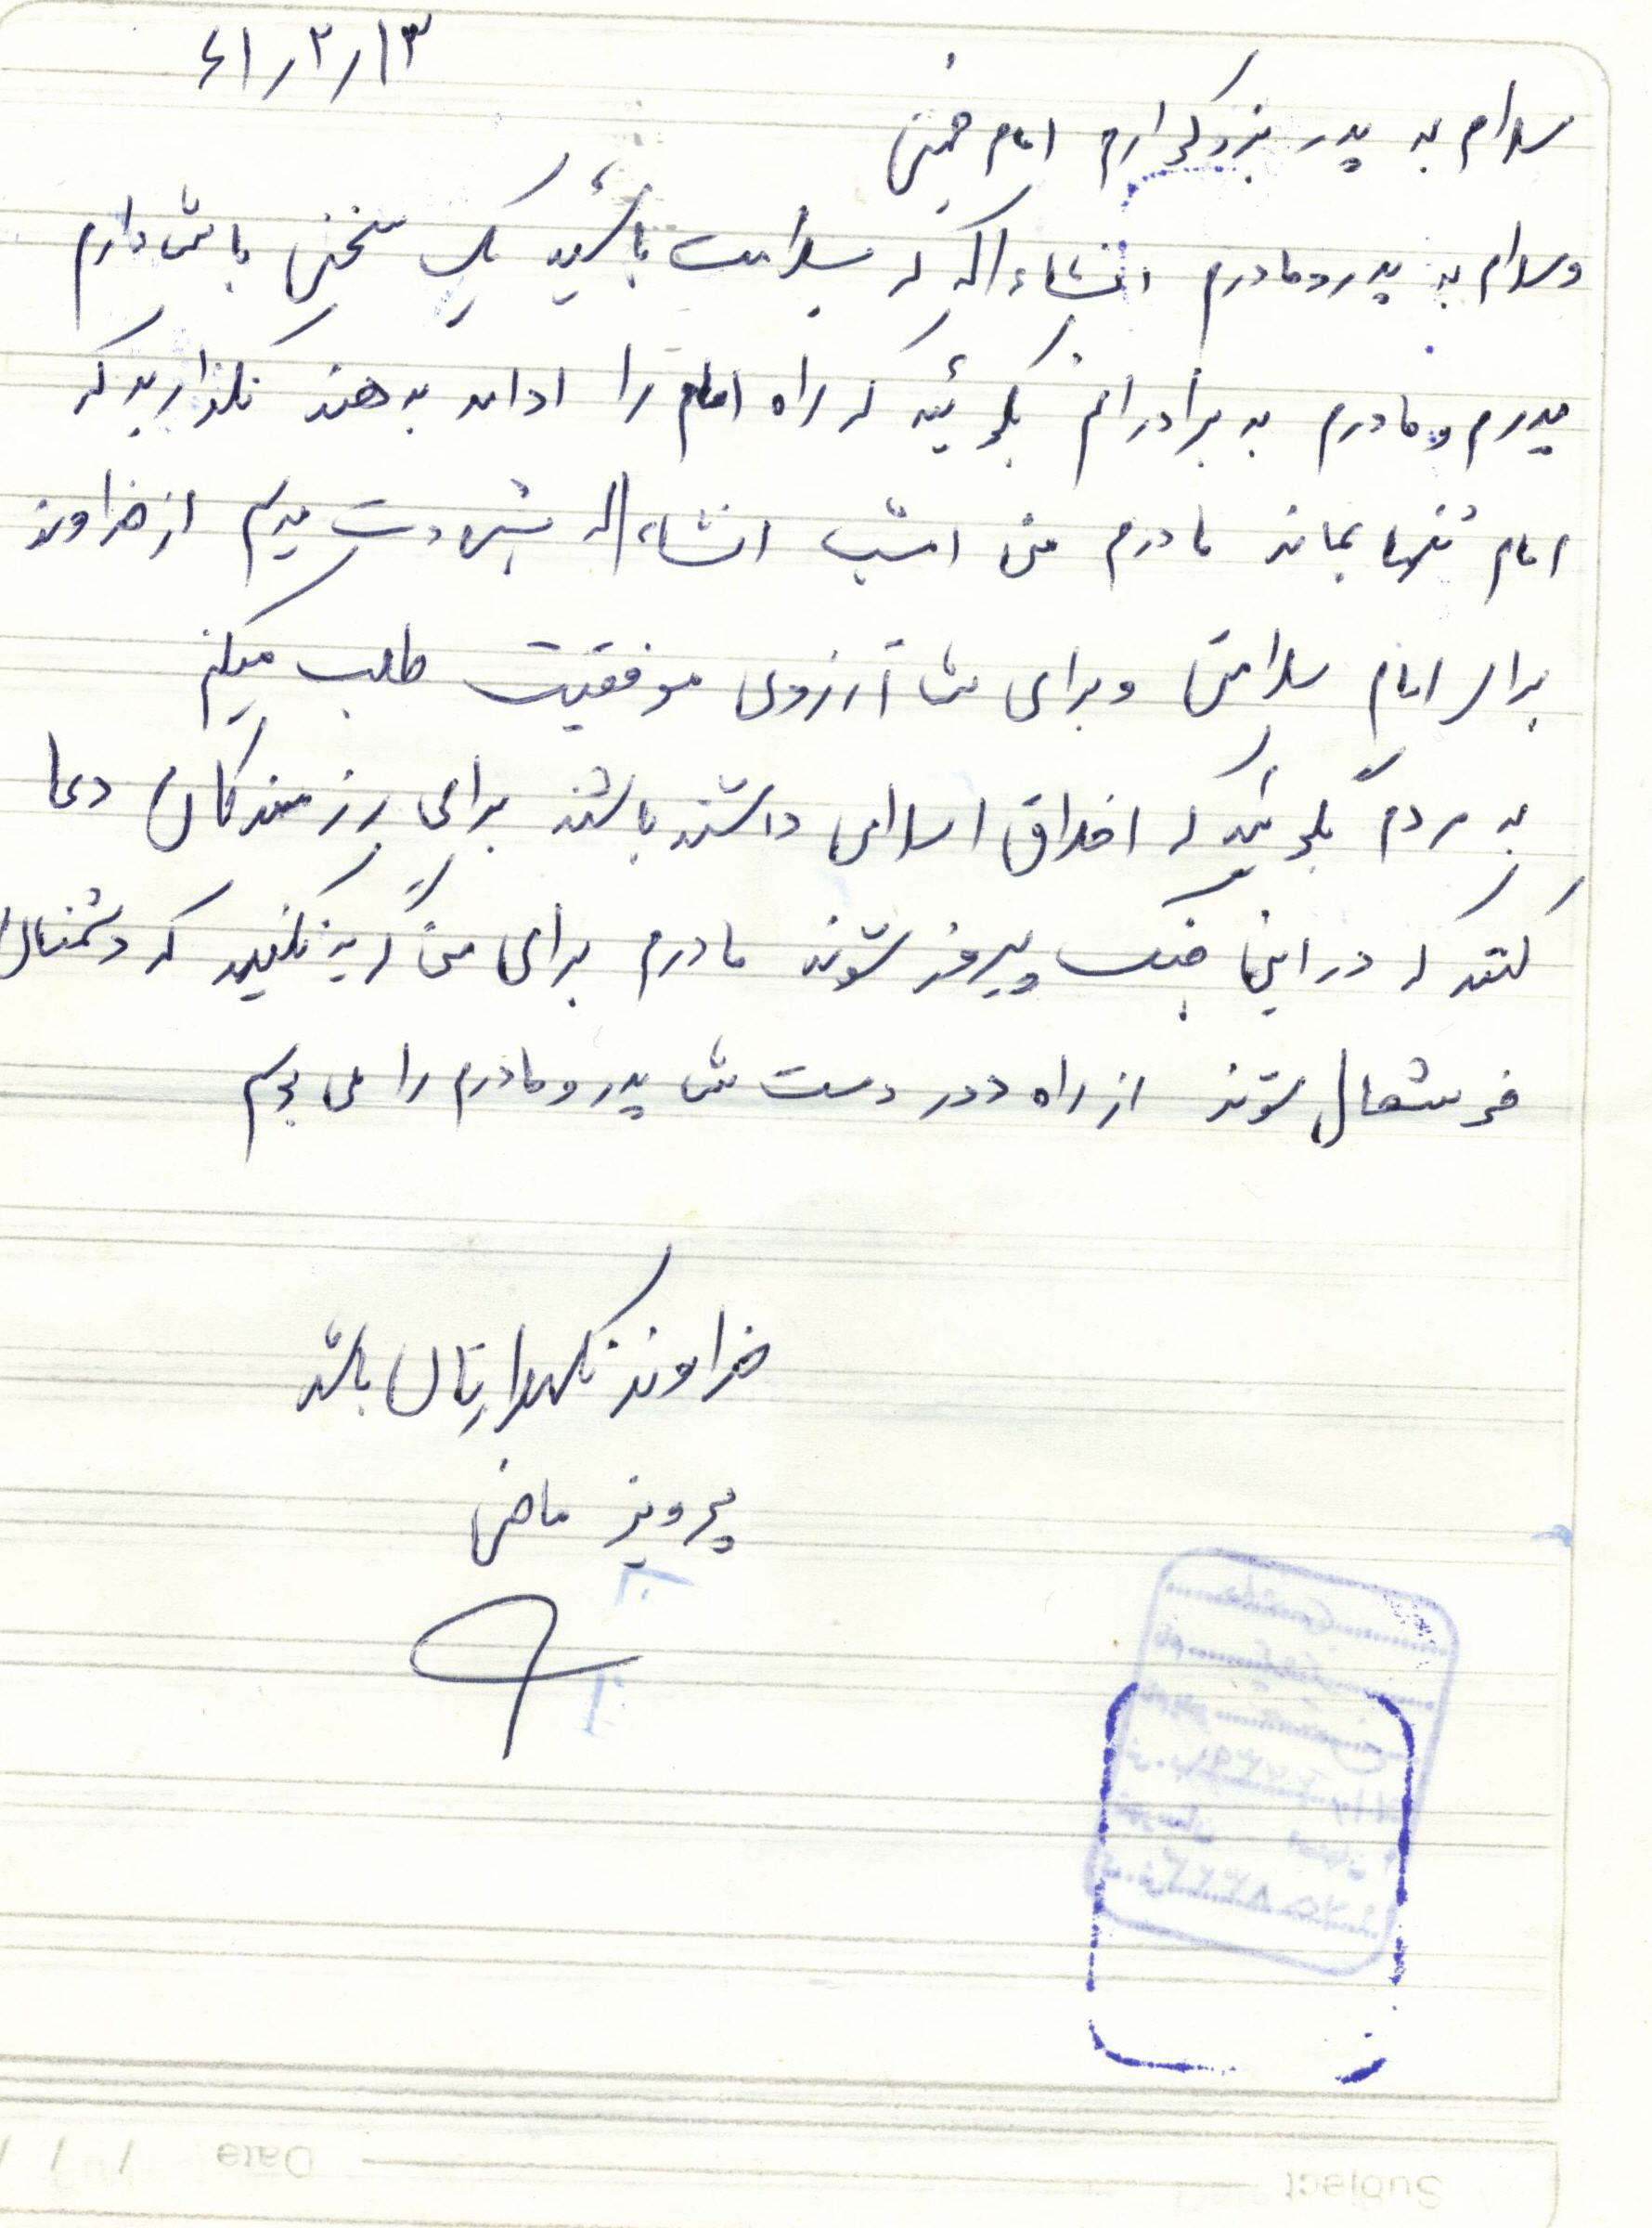 ۶۱/۲/۱۳
سلام به پدر بزرگوارم امام خمینی
وسلام به پدر و مادرم انشاءاله که سلامت باشید یک سخنی با شما دارم
پدرم و مادرم به برادرانم بگوئید که راه امام را ادامه بدهند نگذارید که
امام تنها بماند مادرم من امشب انشاءاله بشهادت میرسم از خداوند
برای امام سلامتی و برای شما آرزوی موفقیت طلب میکنم
به مردم بگوئید که اخلاق اسلامی داشته باشند برای رزمندگان دعا
کنند که در این جنگ پیروز شوند مادرم برای من گریه نکنید که دشمنان
خوشحال شوند از راه دور دست شما پدر و مادرم را می بوسم
خداوند نگهدارتان باشد
پرویز ماضی
Subject Date / /